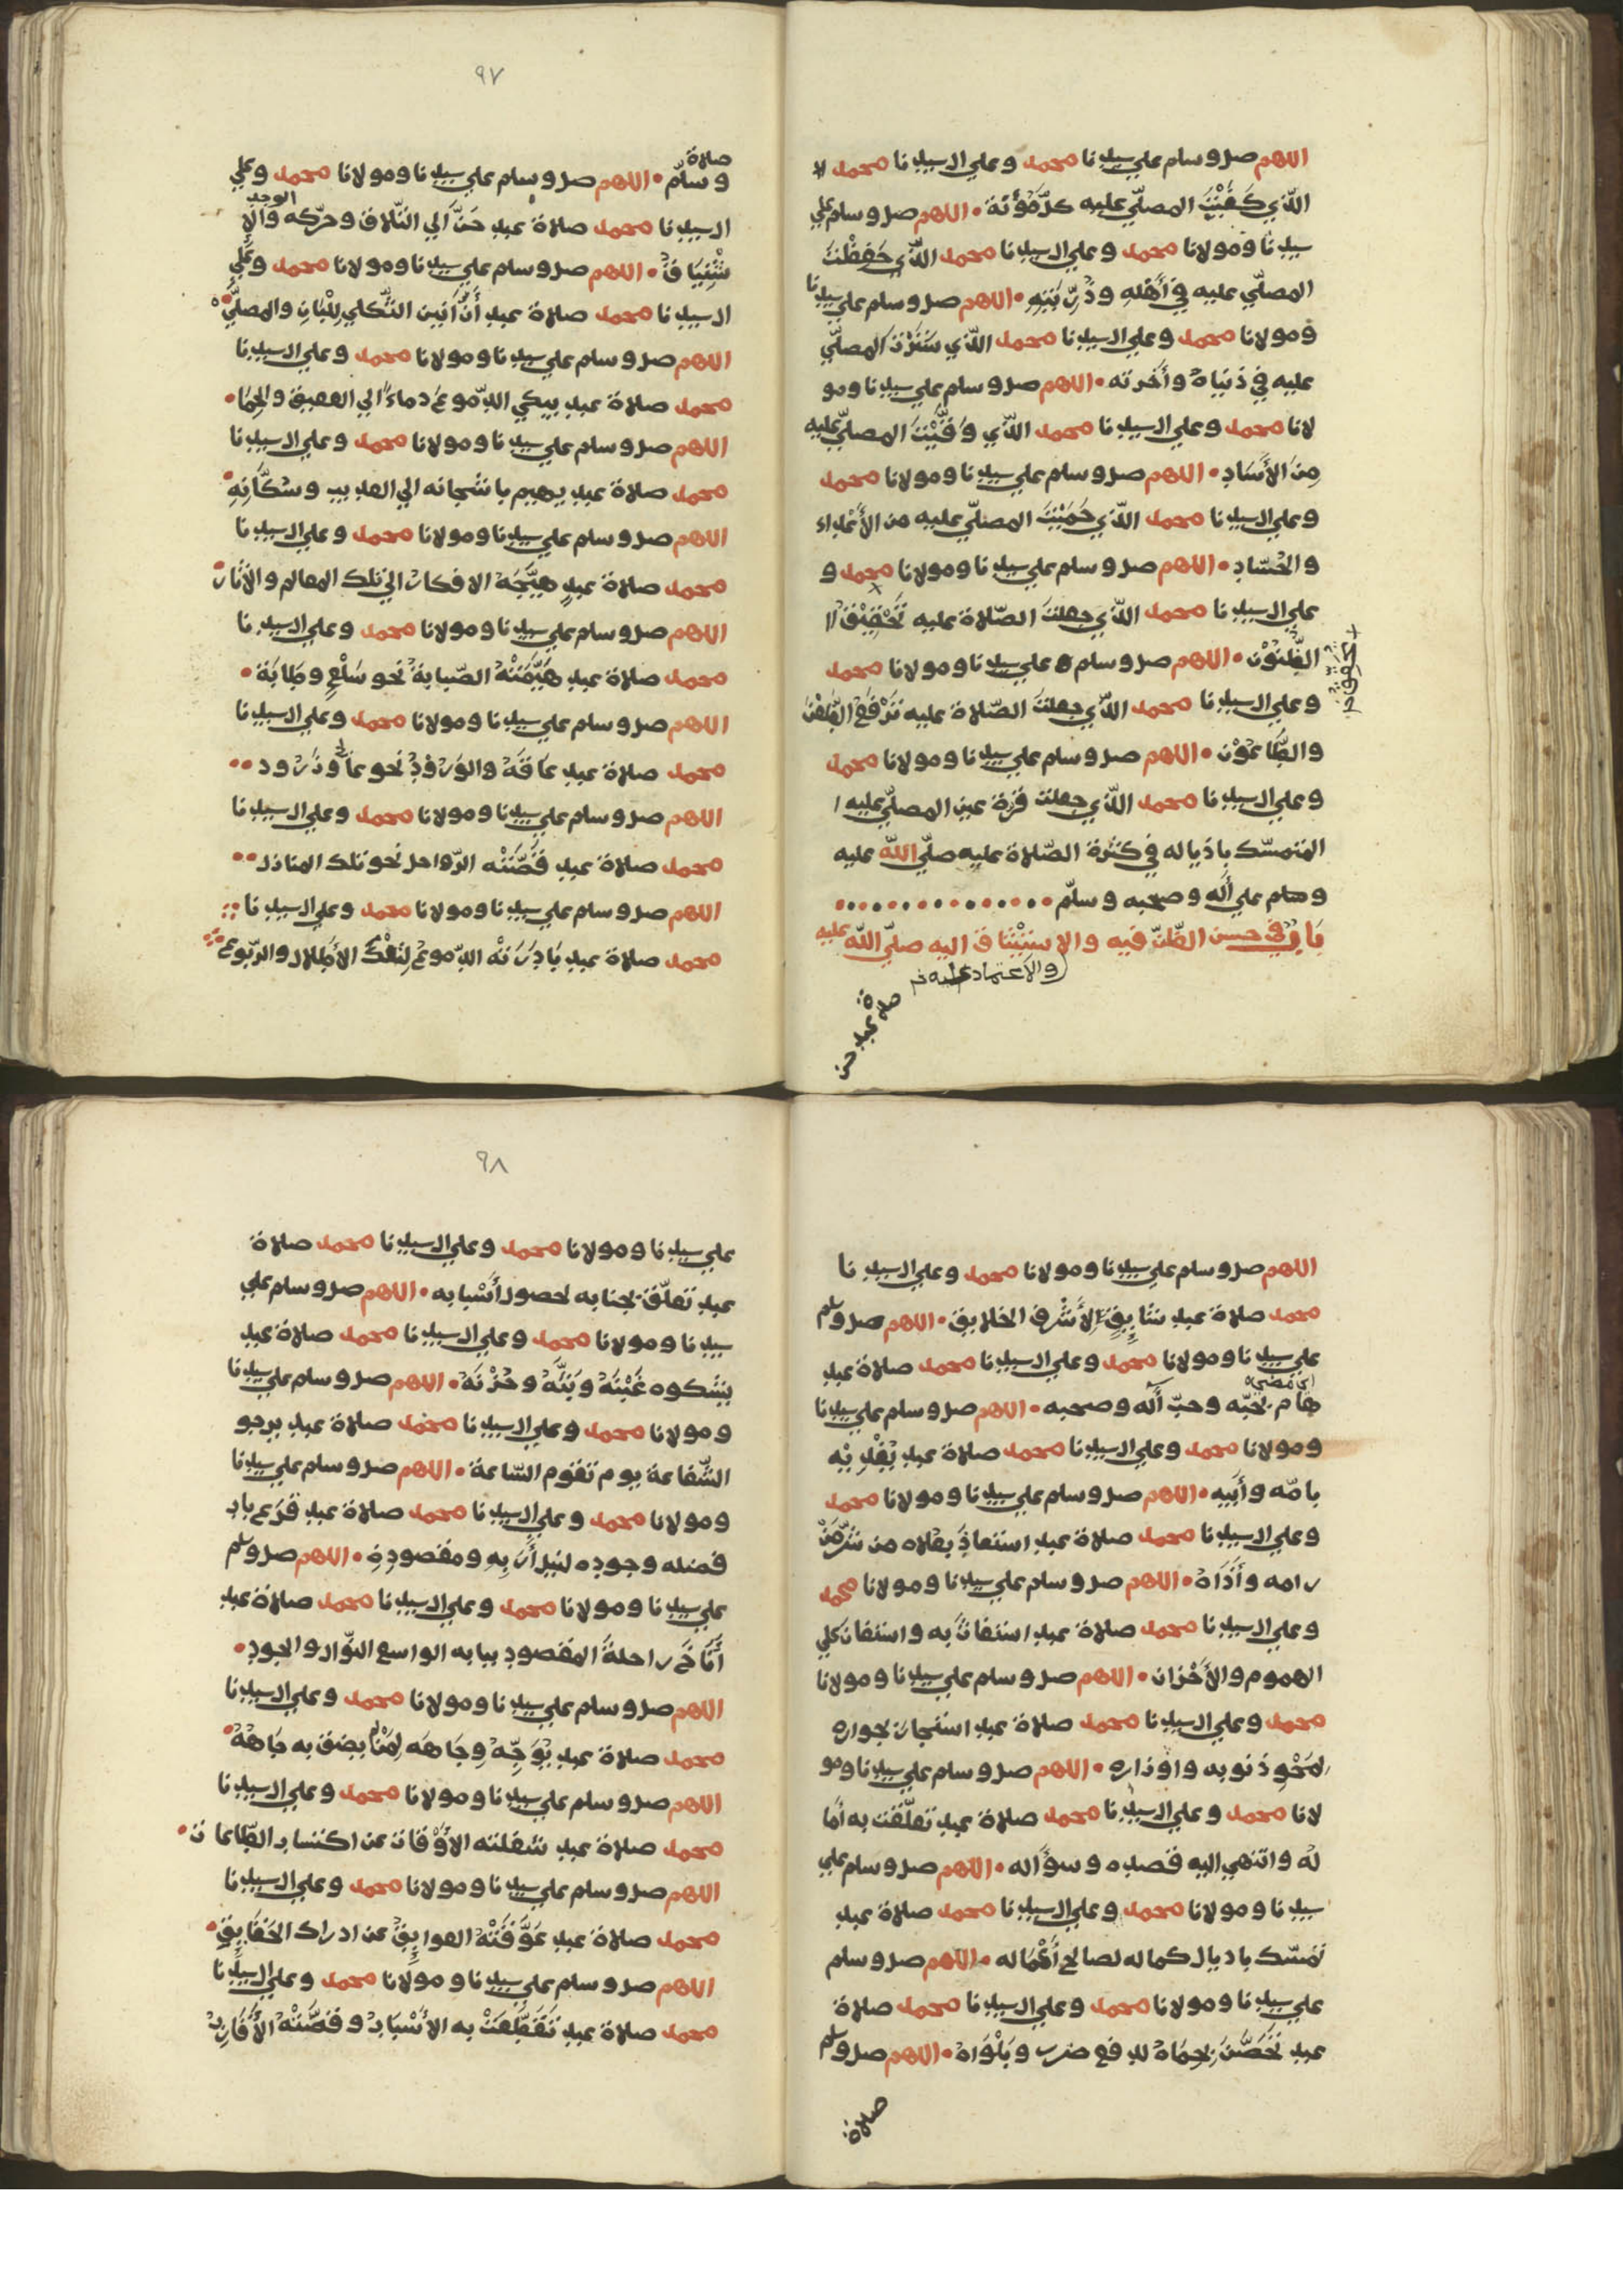 اللهم صل وسلم علي سيدنا محمد وعلي ال سيدنا محمد
الذي كَفَيْتَ المصلّي عليه كلّ مؤنة • اللهم صل وسلم علي
سيدنا ومولانا محمد وعلي ال سيدنا محمد الذي حَفِظْتَ
المصلّي عليه في أَهْلِهِ وذُرِّيَّتِهِ • اللهم صل وسلم علي سيدنا
ومولانا محمد وعلي ال سيدنا محمد الذي سَتَرْتَ المصلّي
عليه في دُنياهُ وأخرته • اللهم صل وسلم علي سيدنا ومو
لانا محمد وعلي ال سيدنا محمد الذي وَقَّيْتَ المصلّي عليه
مِنَ الأَسَادِ • اللهم صل وسلم علي سيدنا ومولانا محمد
وعلي ال سيدنا محمد الذي حَمَيْتَ المصلّي عليه من الأَعْداء
والحُسّادِ • اللهم صل وسلم علي سيدنا ومولانا محمد و
علي ال سيدنا محمد الذي جعلتَ الصّلاة عليه تَحْقِيْقَ
الظُّنُوْن • اللهم صل وسلم علي سيدنا ومولانا محمد
وعلي ال سيدنا محمد الذي جعلتَ الصّلاة عليه تَرْفَعُ الطَّعْنَ
والطَّاعُوْن • اللهم صل وسلم علي سيدنا ومولانا محمد
وعلي ال سيدنا محمد الذي جعلت قرة عين المصلّي عليه
المتمسّك باذياله في كثرة الصّلاة عليه صلّي الله عليه
وسلم علي أله وصحبه وسلّم
بَابٌ في حسن الظّنّ فيه والاِسْتِيْنَاق اليه صلّي الله عليه
والاعتماد عليه
صلاة عبد حن
٩٧
صلاة
وسلّم • اللهم صل وسلم علي سيدنا ومولانا محمد وعلي
ال سيدنا محمد صلاة عبدٍ حَنَّ الي التّلاق وحرّكه الوجد والاِ
شْتِيَاقُ • اللهم صل وسلم علي سيدنا ومولانا محمد وعَلَي
ال سيدنا محمد صلاة عبدٍ أَنَّ أَنِين الثّكلي لِلْبَانِ والمصلّي •
اللهم صل وسلم علي سيدنا ومولانا محمد وعلي ال سيدنا
محمد صلاة عبدٍ يبكي الدّموعَ دماءً الي العقيق والحِمَا •
اللهم صل وسلم علي سيدنا ومولانا محمد وعلي ال سيدنا
محمد صلاة عبدٍ يهيم باشجانه الي العذيب وسُكَّانِهِ •
اللهم صل وسلم علي سيدنا ومولانا محمد وعلي ال سيدنا
محمد صلاة عبدٍ هيَّجَهُ الافكارُ الي تلك المعالم والاثار •
اللهم صل وسلم علي سيدنا ومولانا محمد وعلي ال سيدنا
محمد صلاة عبدٍ هَيَّمَتْهُ الصّبابةُ نحو سَلْعٍ وطَابَة •
اللهم صل وسلم علي سيدنا ومولانا محمد وعلي ال سيدنا
محمد صلاة عبدٍ عَاقَهُ والوُرُوْدِ نحو وزرود ••
اللهم صل وسلم علي سيدنا ومولانا محمد وعلي ال سيدنا
محمد صلاة عبدٍ قَصَّتْه الرّواحل نحو تلك المنازل ••
اللهم صل وسلم علي سيدنا ومولانا محمد وعلي ال سيدنا
محمد صلاة عبدٍ بَادَرَتْهُ الدّموعُ لِتِلْكَ الأطلال والرّبوع
اللهم صل وسلم علي سيدنا ومولانا محمد وعلي ال سيدنا
محمد صلاة عبدٍ شَايِقٍ لِأَشْرف الخلايق • اللهم صل وسلم
علي سيدنا ومولانا محمد وعلي ال سيدنا محمد صلاة عبدٍ
هام بحُبّه وحبّ آله وصحبه • اللهم صل وسلم علي سيدنا
ومولانا محمد وعلي ال سيدنا محمد صلاة عبدٍ يَفْدِيْهِ
بامّه وأَبِيه • اللهم صل وسلم علي سيدنا ومولانا محمد
وعلي ال سيدنا محمد صلاة عبدٍ استعاذَ بعُلاه من شرّ مَنْ
رامه وأَذَاهُ • اللهم صل وسلم علي سيدنا ومولانا محمد
وعلي ال سيدنا محمد صلاة عبدٍ استغاثَ به واستعان علي
الهموم والأَحْزان • اللهم صل وسلم علي سيدنا ومولانا
محمد وعلي ال سيدنا محمد صلاة عبدٍ استجار بجواره
لِمَحْوِ ذنوبه واوزاره • اللهم صل وسلم علي سيدنا ومو
لانا محمد وعلي ال سيدنا محمد صلاة عبدٍ تعلّقت به أما
لُه وانتهي اليه قصده وسؤاله • اللهم صل وسلم علي
سيدنا ومولانا محمد وعلي ال سيدنا محمد صلاة عبدٍ
تمسّك باذيال كماله لصالح أَعْمَاله • اللهم صل وسلم
علي سيدنا ومولانا محمد وعلي ال سيدنا محمد صلاة
عبدٍ تَحَصَّنَ بحِمَاهُ لدفع ضره وبَلْوَاهُ • اللهم صل وسلم
صلاة
٩٨
علي سيدنا ومولانا محمد وعلي ال سيدنا محمد صلاة
عبدٍ تعلّق بجنابه لحصول أَسْبابه • اللهم صل وسلم علي
سيدنا ومولانا محمد وعلي ال سيدنا محمد صلاة عبدٍ
يَشْكوه غَيْبَتَهُ وبَثَّهُ وحُزْنَهُ • اللهم صل وسلم علي سيدنا
ومولانا محمد وعلي ال سيدنا محمد صلاة عبدٍ يرجو
الشّفاعة يوم تقوم السّاعة • اللهم صل وسلم علي سيدنا
ومولانا محمد وعلي ال سيدنا محمد صلاة عبدٍ قَرَع باب
فضله وجوده لنيل أَرَبِهِ ومقصودِهِ • اللهم صل وسلم
علي سيدنا ومولانا محمد وعلي ال سيدنا محمد صلاة عبدٍ
أَنَاخَ راحلةَ المقصودِ ببابه الواسع النّوال والجودِ •
اللهم صل وسلم علي سيدنا ومولانا محمد وعلي ال سيدنا
محمد صلاة عبدٍ يُوَجِّهُ وِجَاهَه لِمَنْ لم يضق به جَاهُهُ •
اللهم صل وسلم علي سيدنا ومولانا محمد وعلي ال سيدنا
محمد صلاة عبدٍ شغلته الأَوْقات عن اكتساب الطّاعات •
اللهم صل وسلم علي سيدنا ومولانا محمد وعلي ال سيدنا
محمد صلاة عبدٍ عَوَّقَتْهُ العوايِقُ عن ادراك الحَقَايِقِ •
اللهم صل وسلم علي سيدنا ومولانا محمد وعلي ال سيدنا
محمد صلاة عبدٍ تَقَطَّعَتْ به الأَسْبَابُ وقصَّتْهُ الأَقَارِبُ